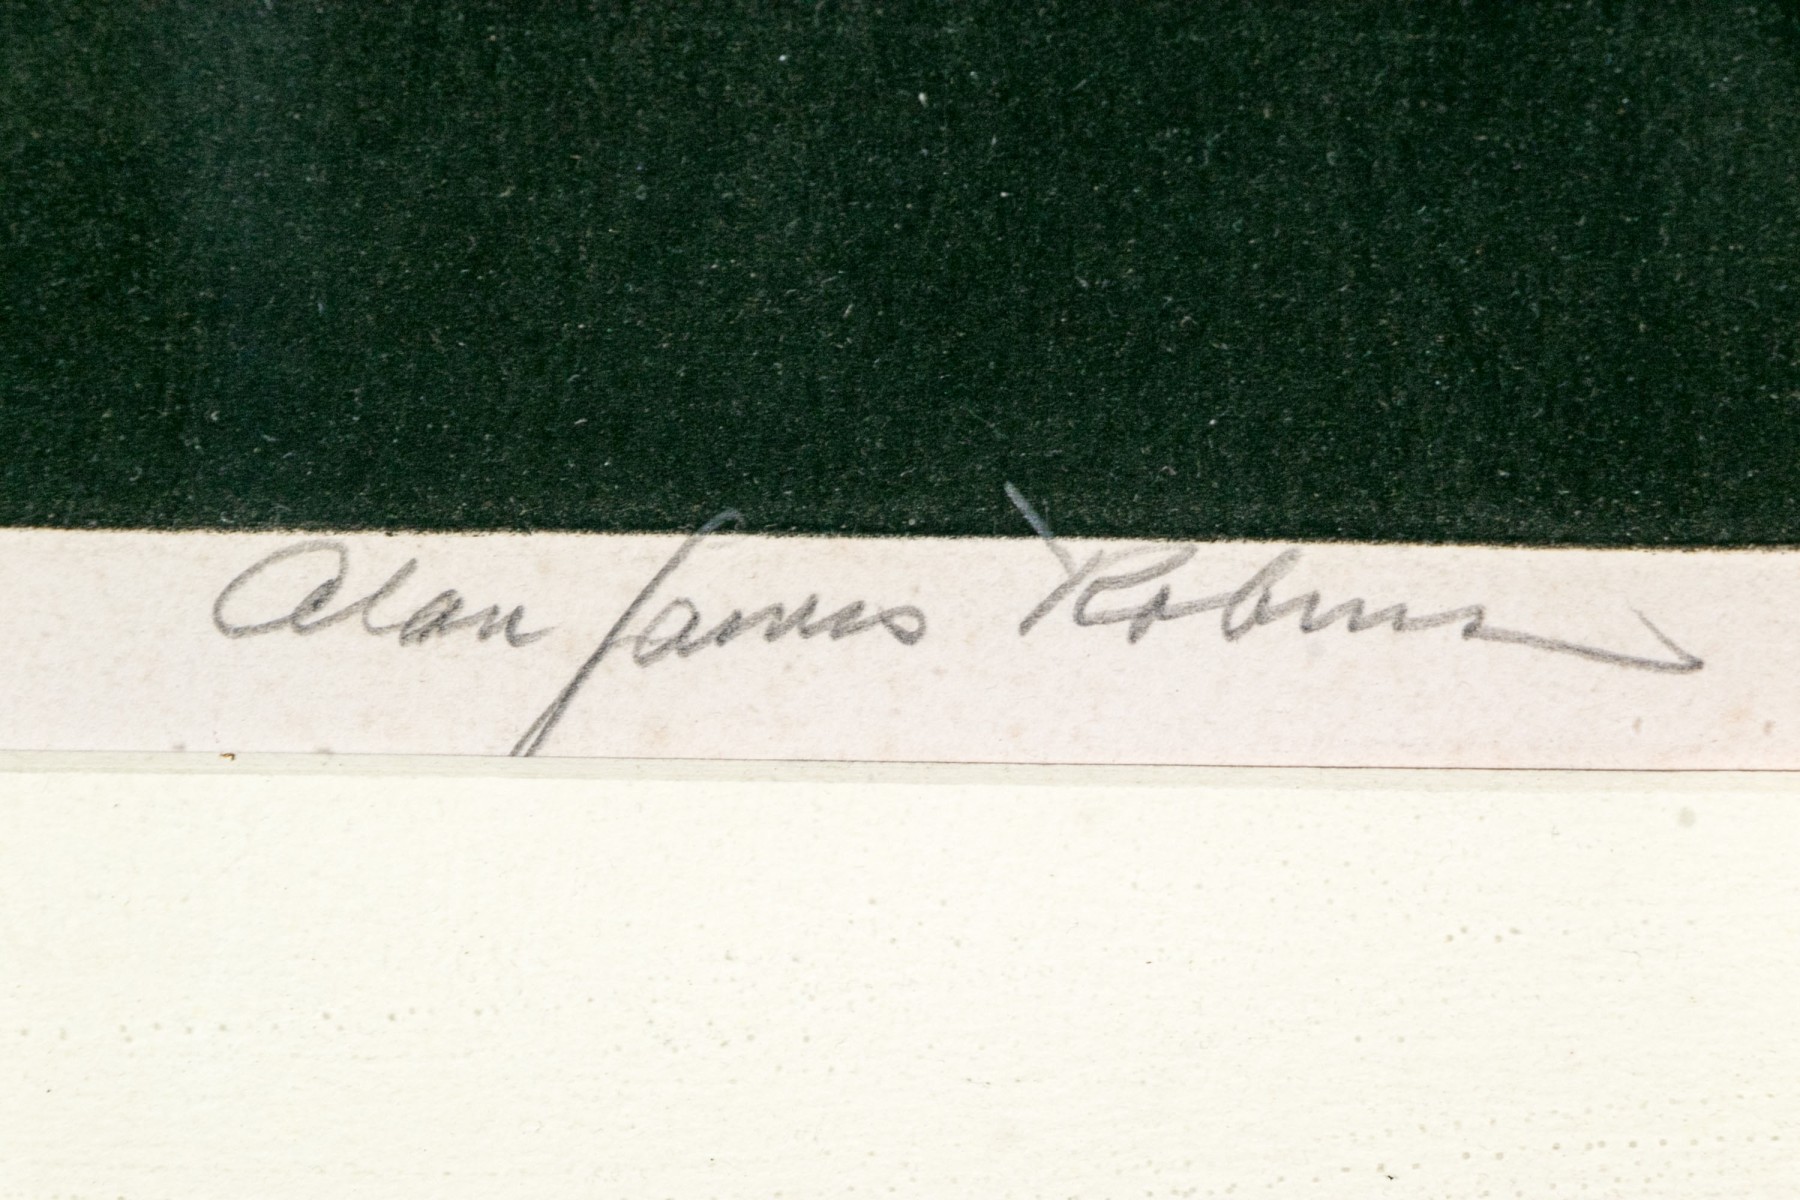 Alan James Robinson